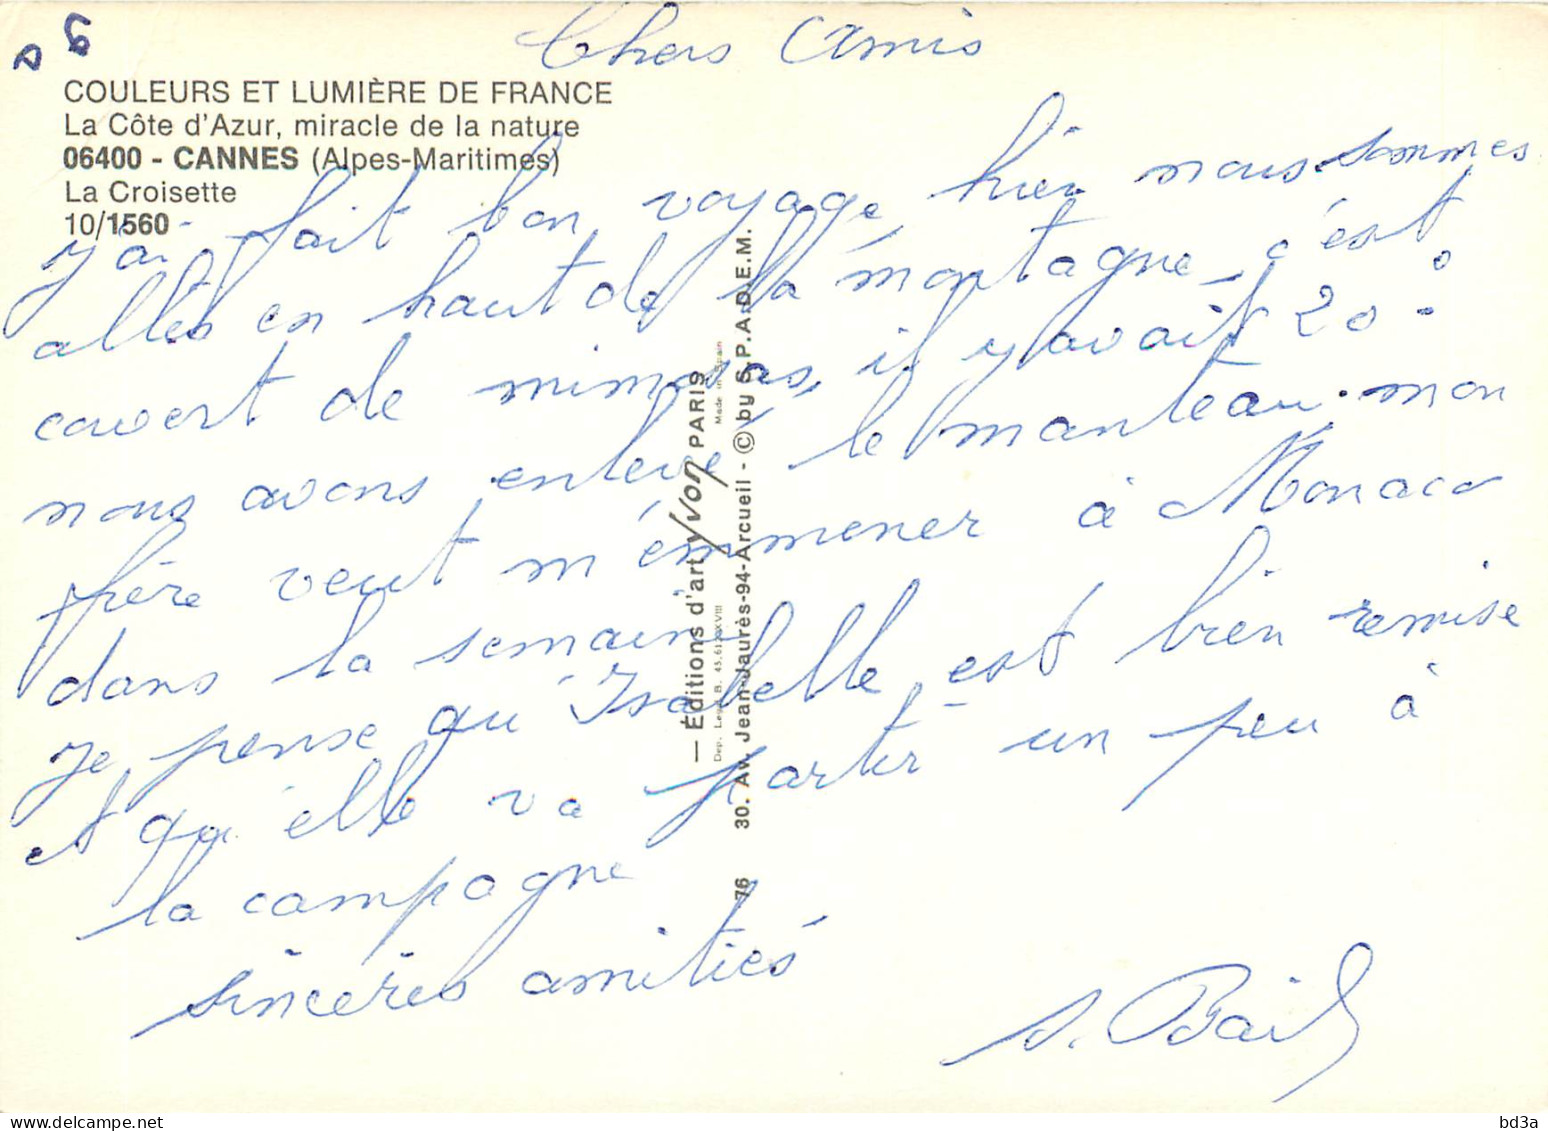 06
Chers Amis
COULEURS ET LUMIÈRE DE FRANCE
La Côte d'Azur, miracle de la nature
06400 - CANNES (Alpes-Maritimes)
La Croisette
10/1560
j'ai fait bon voyage, hier nous sommes
allés en haut de la montagne, c'est
couvert de mimosas, il y avait 20°
nous avons enlevé le manteau. mon
frère veut m'emmener à Monaco
dans la semaine
Je pense qu'Isabelle est bien remise
et qu'elle va partir un peu à
la campagne
sincères amitiés
— Éditions d'art YVON PARIS
Made in Spain
30. Av. Jean-Jaurès-94-Arcueil - © by S.P.A.D.E.M.
76
bd3a